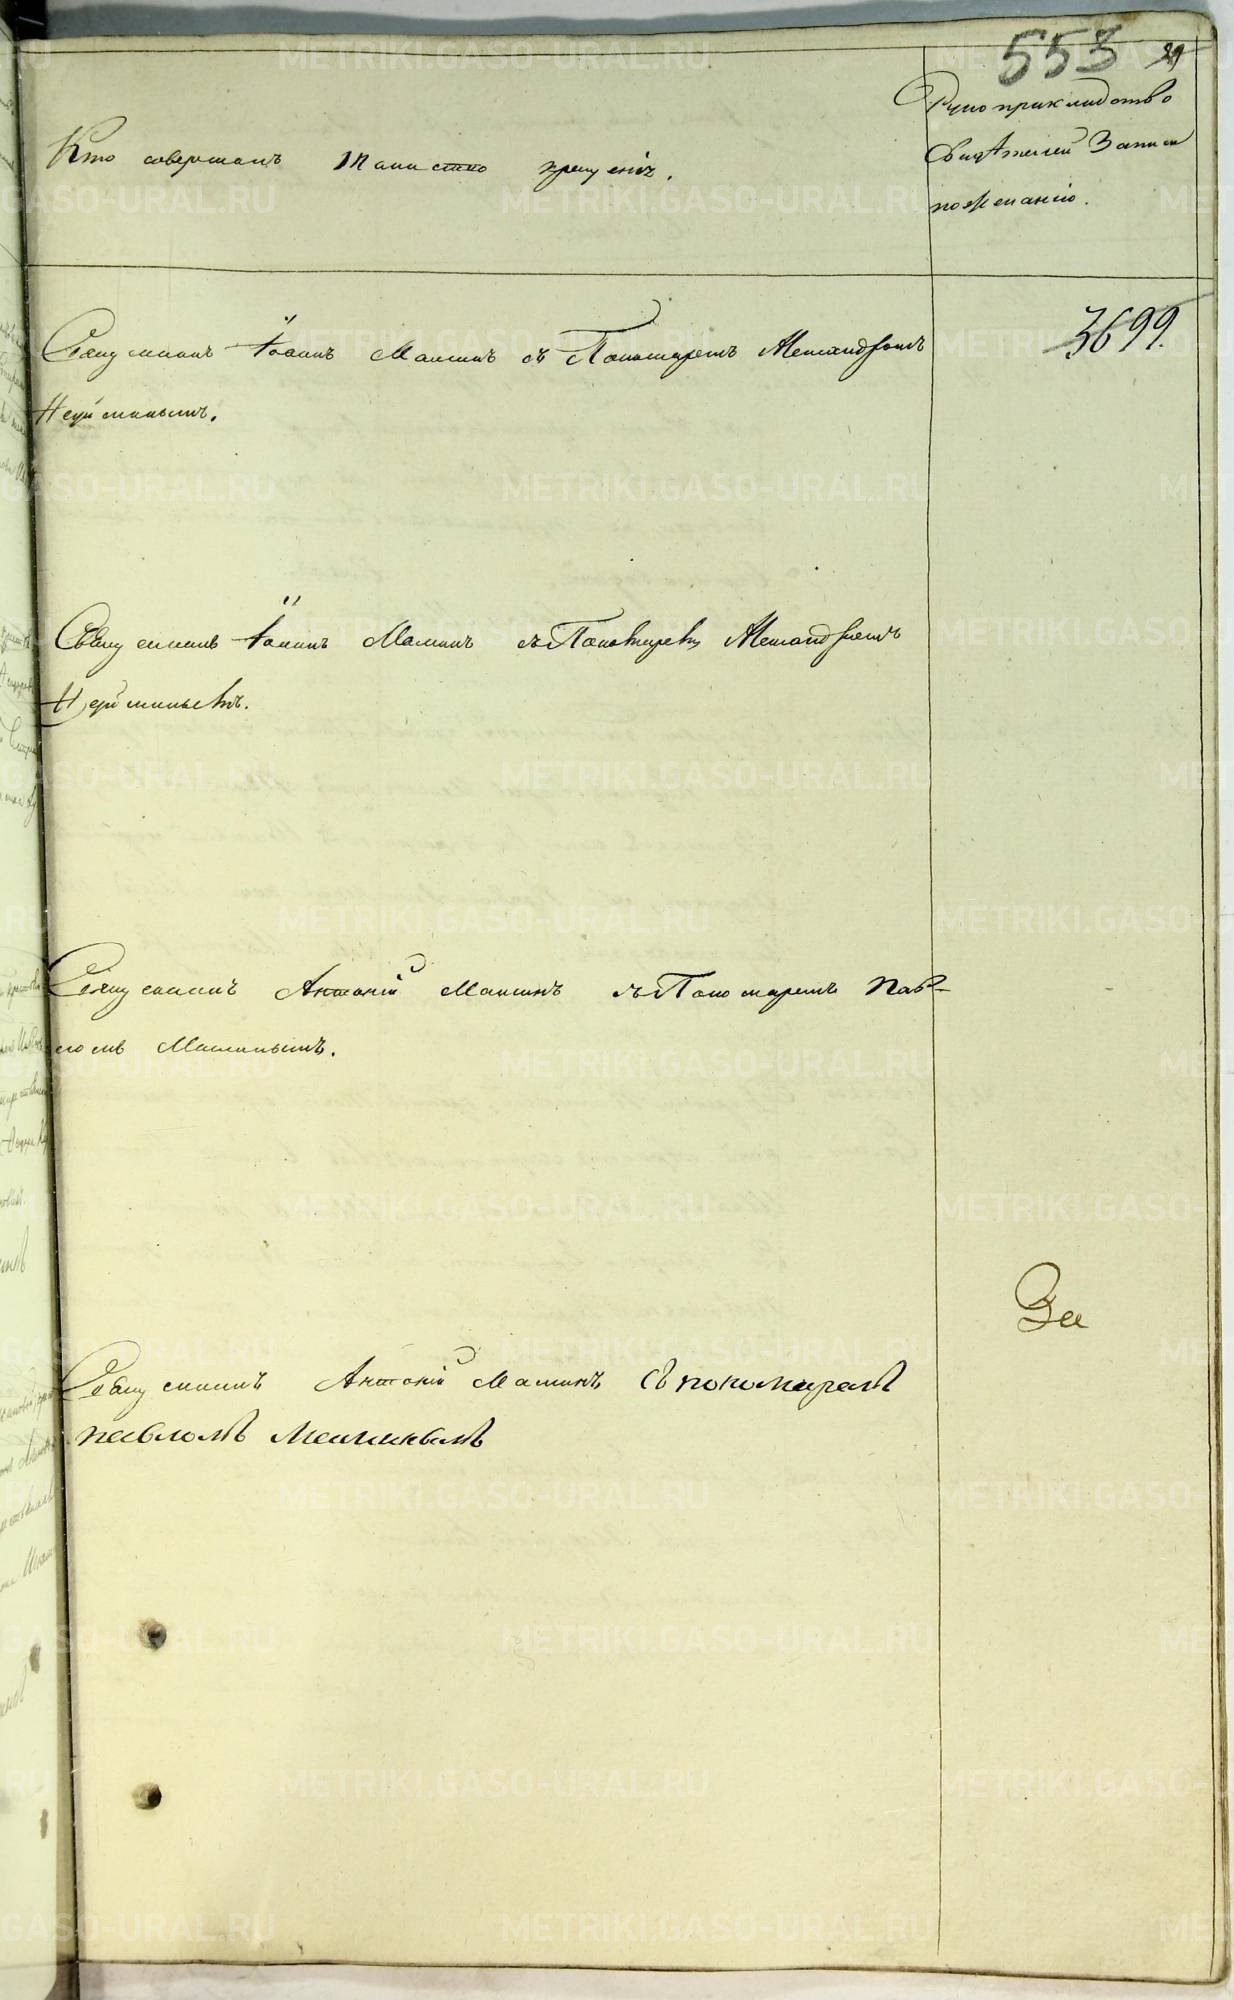 553
29
Кто совершалъ таинство крещенія.
Рукоприкладство
Свидѣтелей Записи
по желанію.
Священникъ Іоаннъ Маминъ съ Пономаремъ Александромъ
3699.
Священникъ Іоаннъ Маминъ съ Пономаремъ Александромъ
Священникъ Антоній Маминъ съ Пономаремъ Пав-
ломъ Маминымъ.
За
Священникъ Антоній Маминъ съ пономаремъ
павломъ Маминымъ
METRIKI.GASO-URAL.RU